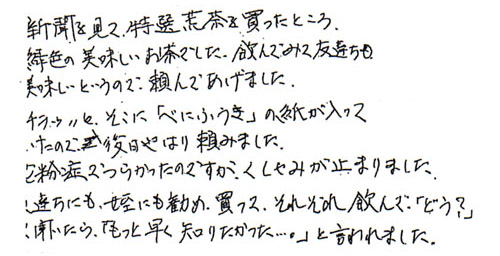 新聞を見て、特選荒茶を買ったところ、
緑色の美味しいお茶でした。飲んでみて友達も
美味しいというので、頼んであげました。
と、そこに「べにふうき」の紙が入って
いたので、後日やはり頼みました。
花粉症でつらかったのですが、くしゃみが止まりました。
友達にも、姪にも勧め、買って、それぞれ飲んで、「どう?」
と聞いたら、「もっと早く知りたかった…。」と言われました。